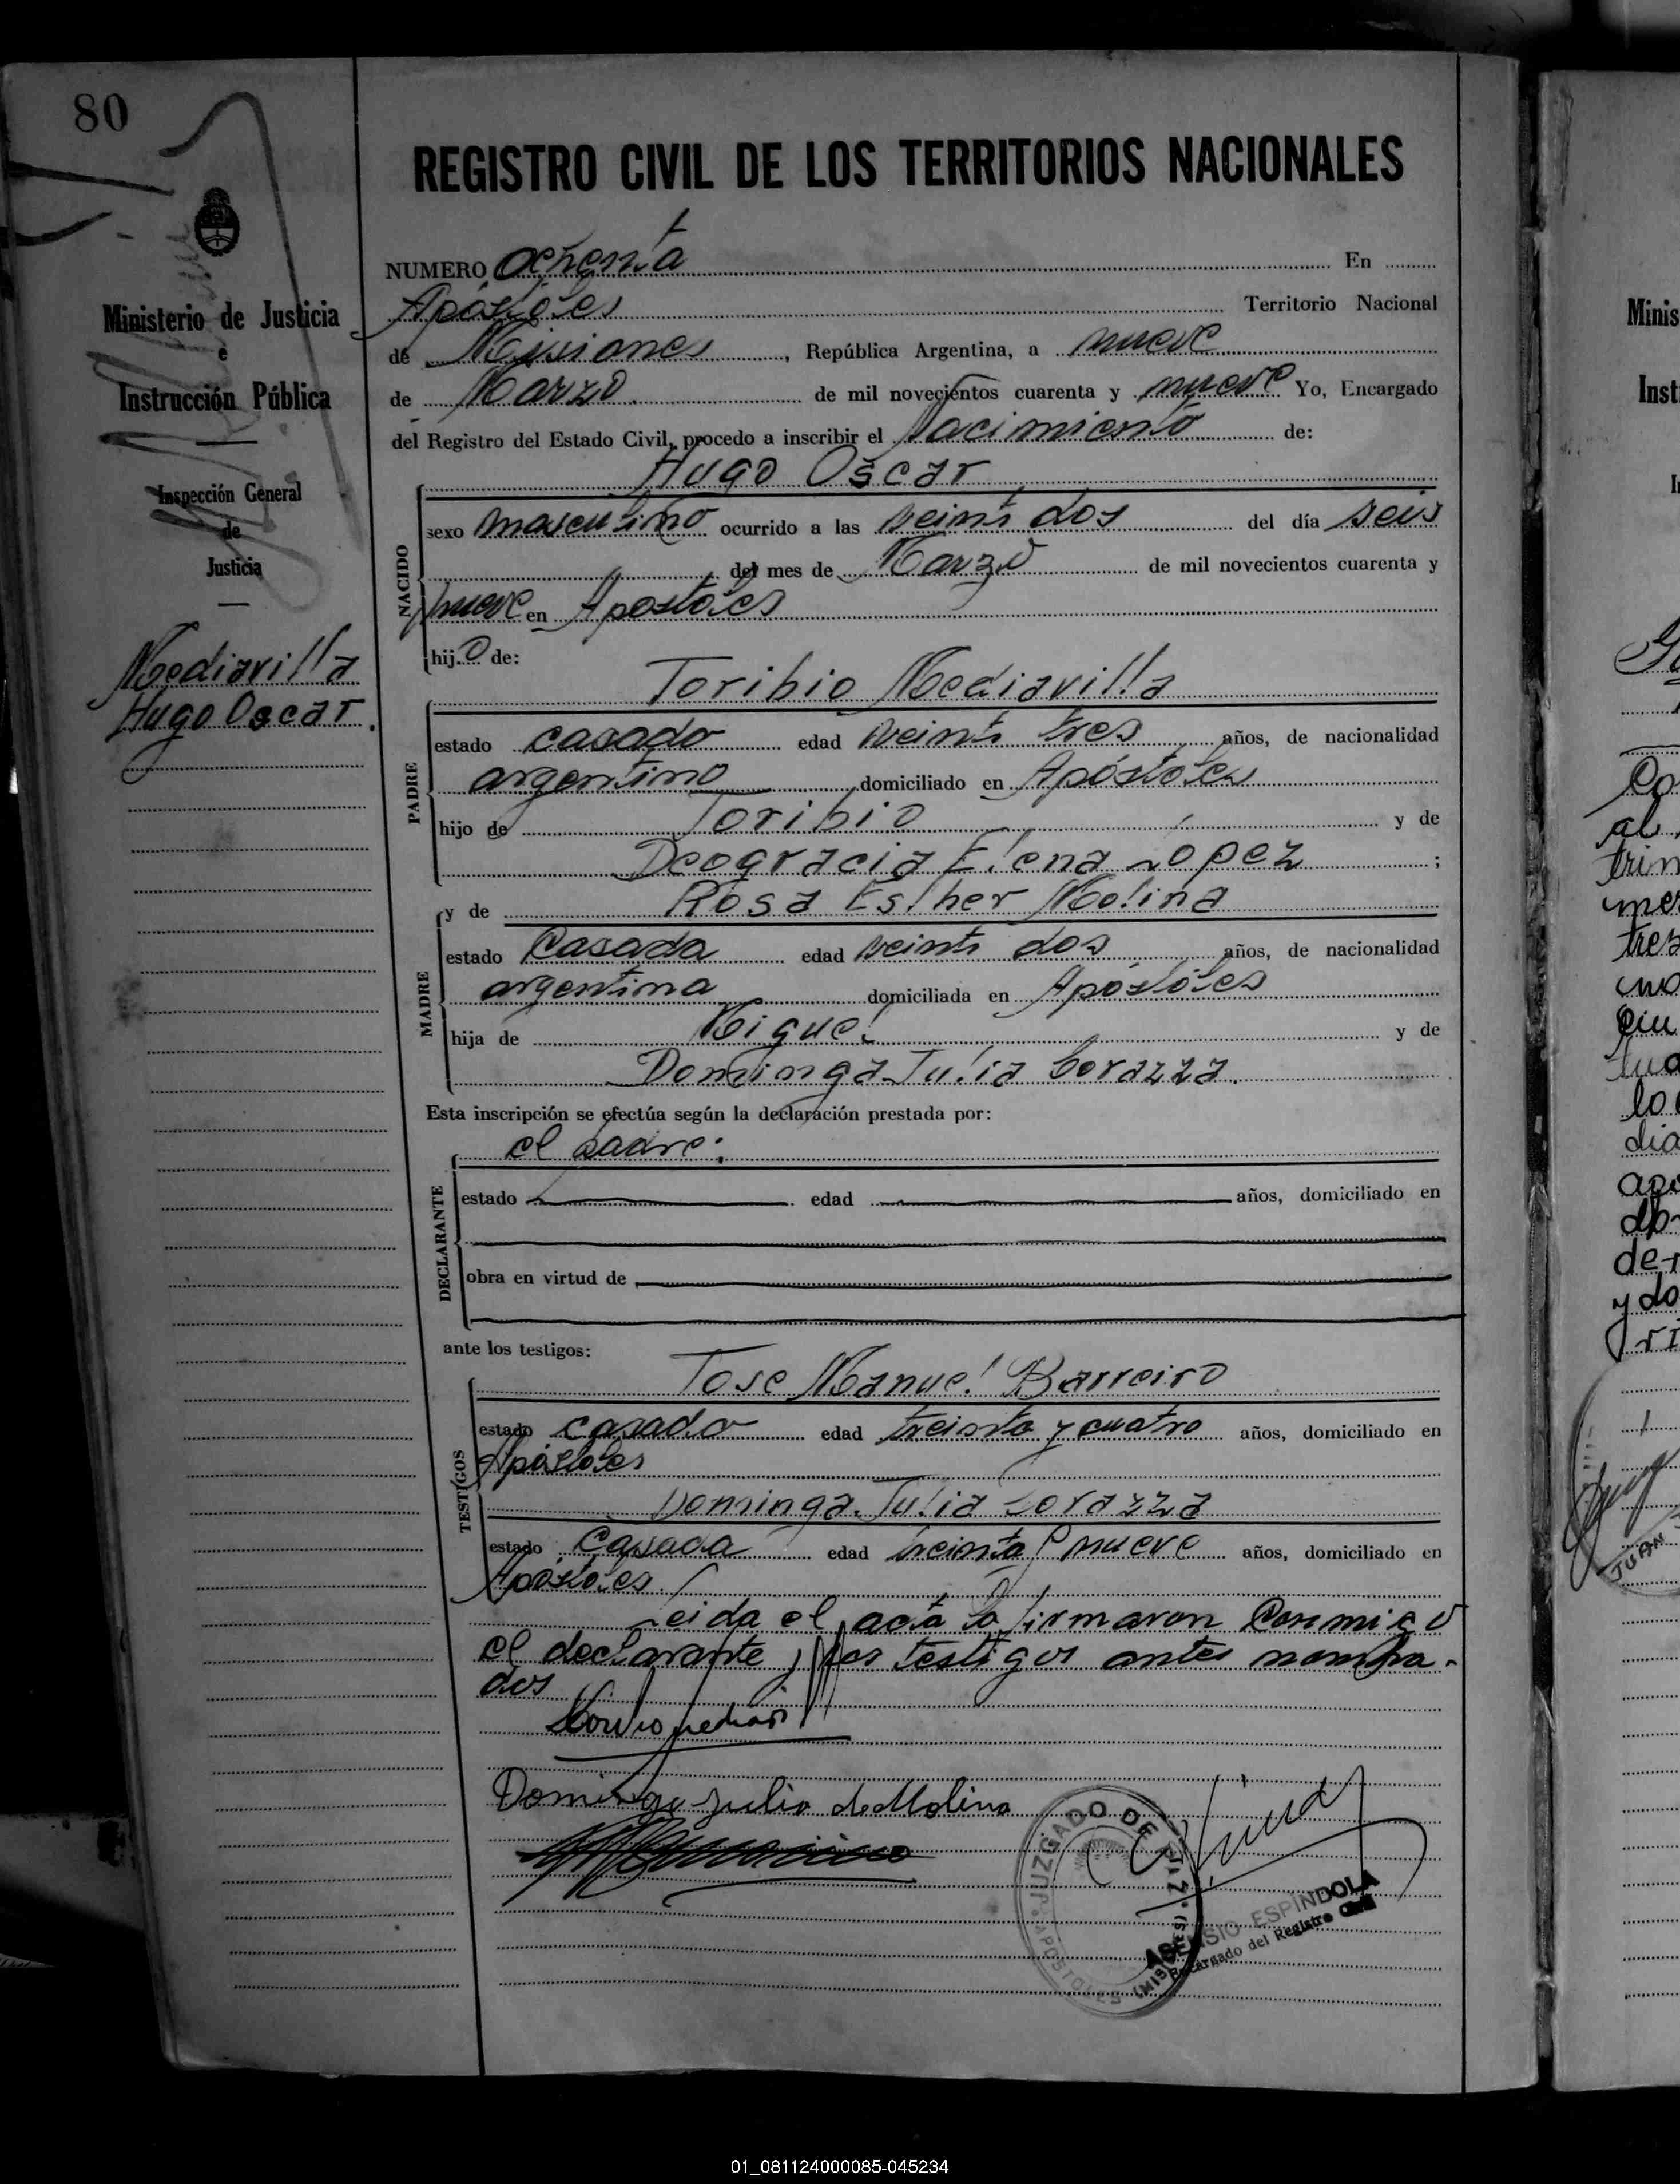 80
REGISTRO CIVIL DE LOS TERRITORIOS NACIONALES
Ministerio de Justicia
e
Instrucción Pública
Inspección General
de
Justicia
Mediavilla
Hugo Oscar.
NUMERO ochenta En
Apóstoles Territorio Nacional
de Misiones, República Argentina, a nueve
de Marzo. de mil novecientos cuarenta y nueve Yo, Encargado
del Registro del Estado Civil, procedo a inscribir el Nacimiento de:
Hugo Oscar
NACIDO
sexo masculino ocurrido a las veinti dos del día seis
del mes de Marzo de mil novecientos cuarenta y
nueve en Apostoles
hijo de:
Toribio Mediavilla
PADRE
estado casado edad veinti tres años, de nacionalidad
argentino domiciliado en Apóstoles
hijo de Toribio y de
Deogracia Elena Lopez ;
y de Rosa Esther Molina
MADRE
estado Casada edad veinti dos años, de nacionalidad
argentina domiciliada en Apóstoles
hija de Miguel y de
Dominga Julia Corazza.
Esta inscripción se efectúa según la declaración prestada por:
el padre:
DECLARANTE
estado edad años, domiciliado en
obra en virtud de
ante los testigos:
Jose Manuel Barreiro
TESTIGOS
estado casado edad treinta y cuatro años, domiciliado en
Apóstoles
Dominga Julia Corazza
estado Casada edad treinta y nueve años, domiciliado en
Apóstoles.
Leida el acta la firmaron conmigo
el declarante y los testigos antes nombra-
dos
Dominga Julia de Molina
JUZGADO DE PAZ
APOSTOLES (MISIONES)
ASENSIO ESPINDOLA
Encargado del Registro Civil
Minis
Inst
01_081124000085-045234